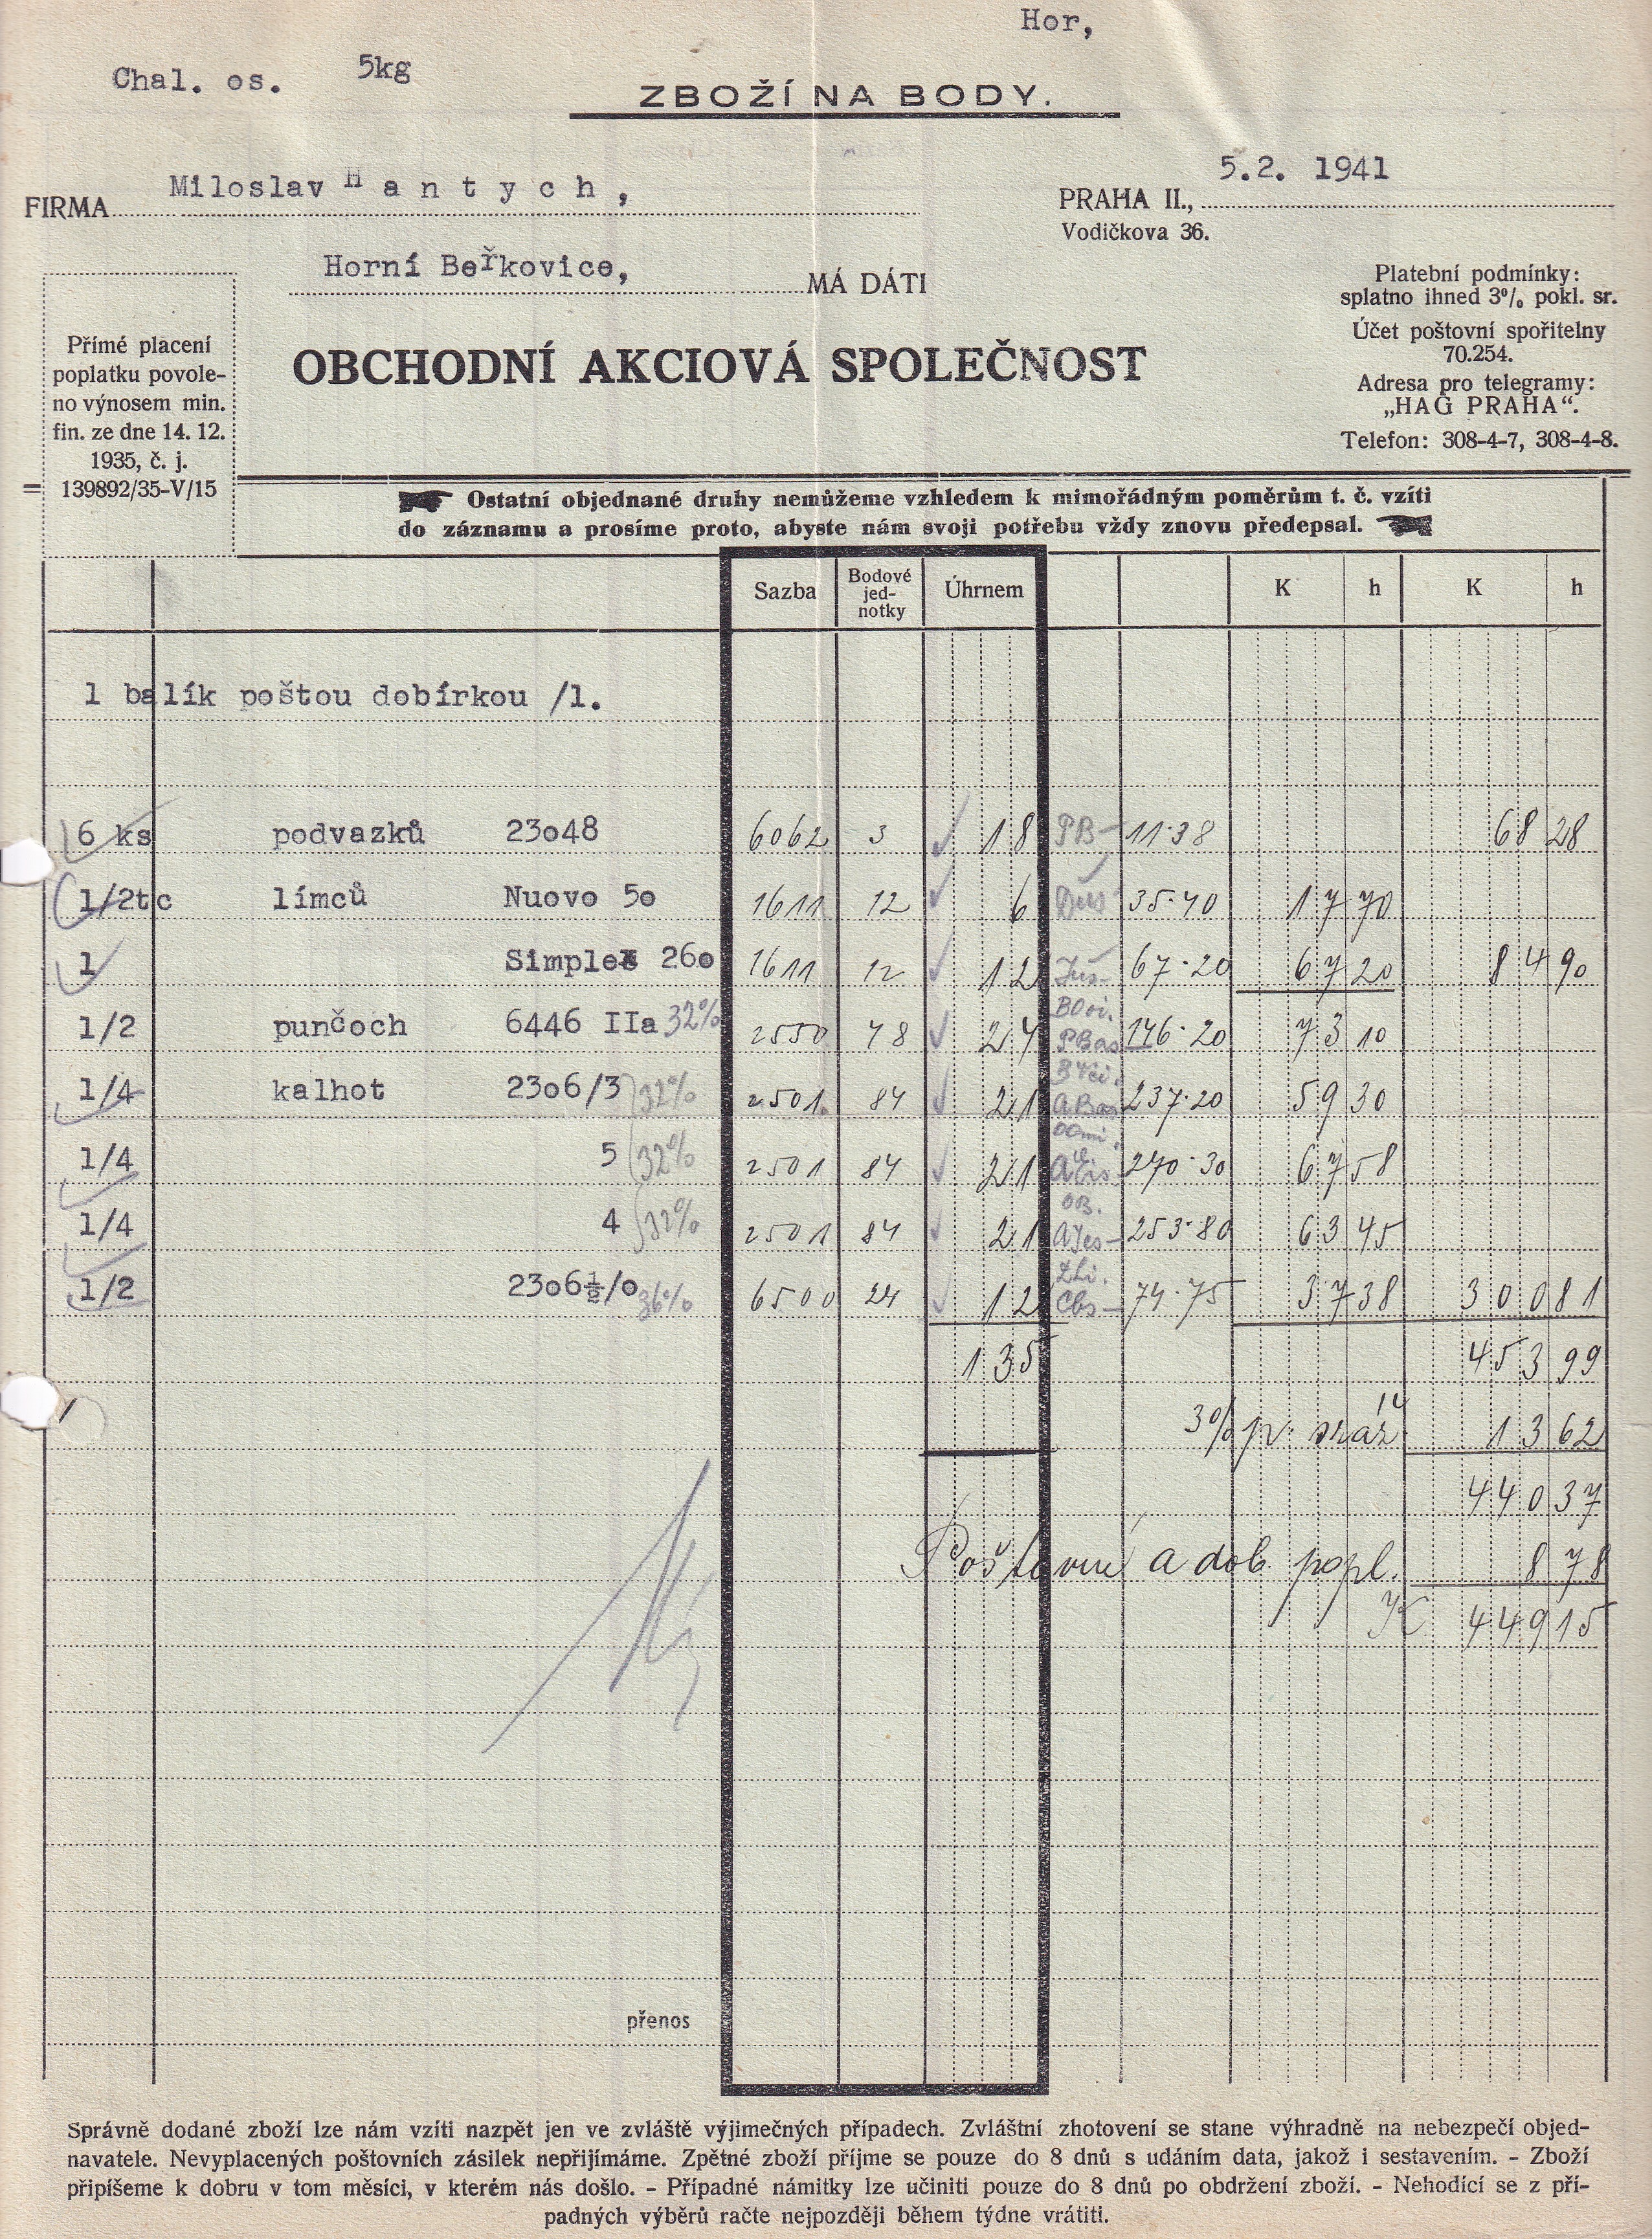 Hor,
Chal. os. 5kg
ZBOŽÍ NA BODY.
5.2. 1941
FIRMA Miloslav H a n t y c h ,
PRAHA II.,
Vodičkova 36.
Horní Beřkovice,
MÁ DÁTI
Platební podmínky:
splatno ihned 3% pokl. sr.
Účet poštovní spořitelny
70.254.
Adresa pro telegramy:
„HAG PRAHA“.
Telefon: 308-4-7, 308-4-8.
Přímé placení
poplatku povole-
no výnosem min.
fin. ze dne 14. 12.
1935, č. j.
139892/35-V/15
OBCHODNÍ AKCIOVÁ SPOLEČNOST
Ostatní objednané druhy nemůžeme vzhledem k mimořádným poměrům t. č. vzíti
do záznamu a prosíme proto, abyste nám svoji potřebu vždy znovu předepsal.
Sazba Bodové jed- notky Úhrnem K h K h
1 balík poštou dobírkou /1.
6 ks podvazků 23o48 6062 3 18 PB- 11·38 68 28
1/2tc límců Nuovo 5o 1611 12 6 35·40 17 70
1 Simplex 26o 1611 12 12 67·20 67 20 84 90
1/2 punčoch 6446 IIa 32% 2550 48 24 146·20 73 10
1/4 kalhot 23o6/3 32% 2501 84 21 237·20 59 30
1/4 5 32% 2501 84 21 270·30 67 58
1/4 4 32% 2501 84 21 253·80 63 45
1/2 23o6½/o 36% 6500 24 12 74·75 37 38 300 81
135 453 99
3% p. sráž. 13 62
440 37
Poštovné a dob. popl. 8 78
K 449 15
přenos
Správně dodané zboží lze nám vzíti nazpět jen ve zvláště výjimečných případech. Zvláštní zhotovení se stane výhradně na nebezpečí objed-
navatele. Nevyplacených poštovních zásilek nepřijímáme. Zpětné zboží příjme se pouze do 8 dnů s udáním data, jakož i sestavením. - Zboží
připíšeme k dobru v tom měsíci, v kterém nás došlo. - Případné námitky lze učiniti pouze do 8 dnů po obdržení zboží. - Nehodící se z pří-
padných výběrů račte nejpozději během týdne vrátiti.